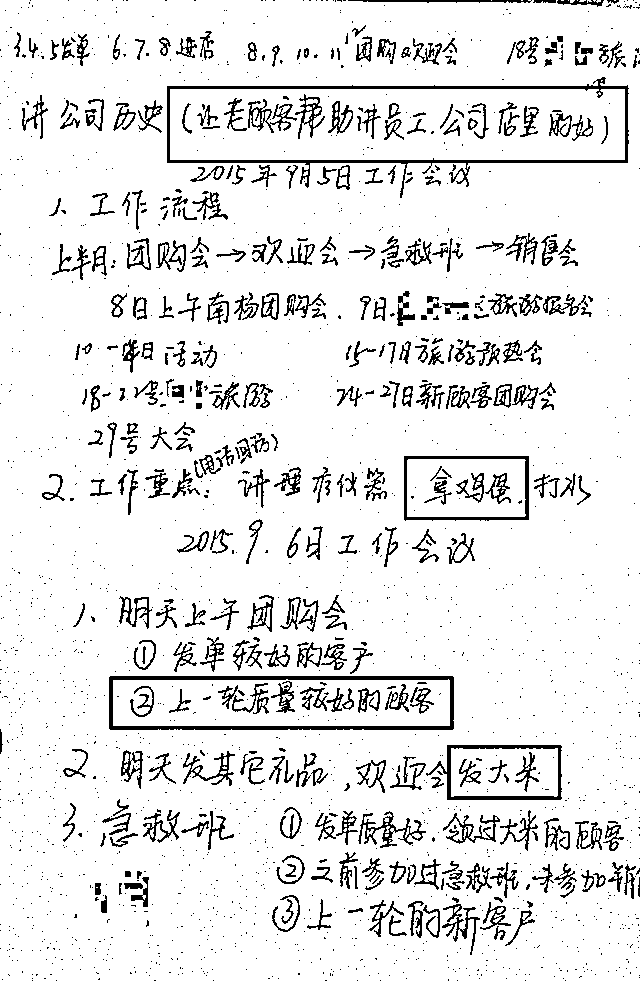 3.4.5发单 6.7.8进店 8.9.10.11.12团购欢迎会 18号 旅
号
讲公司历史(让老顾客帮助讲员工.公司店里的好)
2015年9月5日工作会议
1、工作流程
上半月:团购会→欢迎会→急救班→销售会
8日上午南杨团购会.9日 旅游报名会
10一 日活动 15-17日旅游预热会
18-22号 旅游 24-27日新顾客团购会
29号大会
(电话回访)
2.工作重点:讲理疗仪器.拿鸡蛋.打水
2015.9.6日工作会议
1、明天上午团购会
①发单较好的客户
②上一轮质量较好的顾客
2.明天发其它礼品,欢迎会发大米
3.急救班 ①发单质量好.领过大米的顾客
②之前参加过急救班,未参加销
③上一轮的新客户